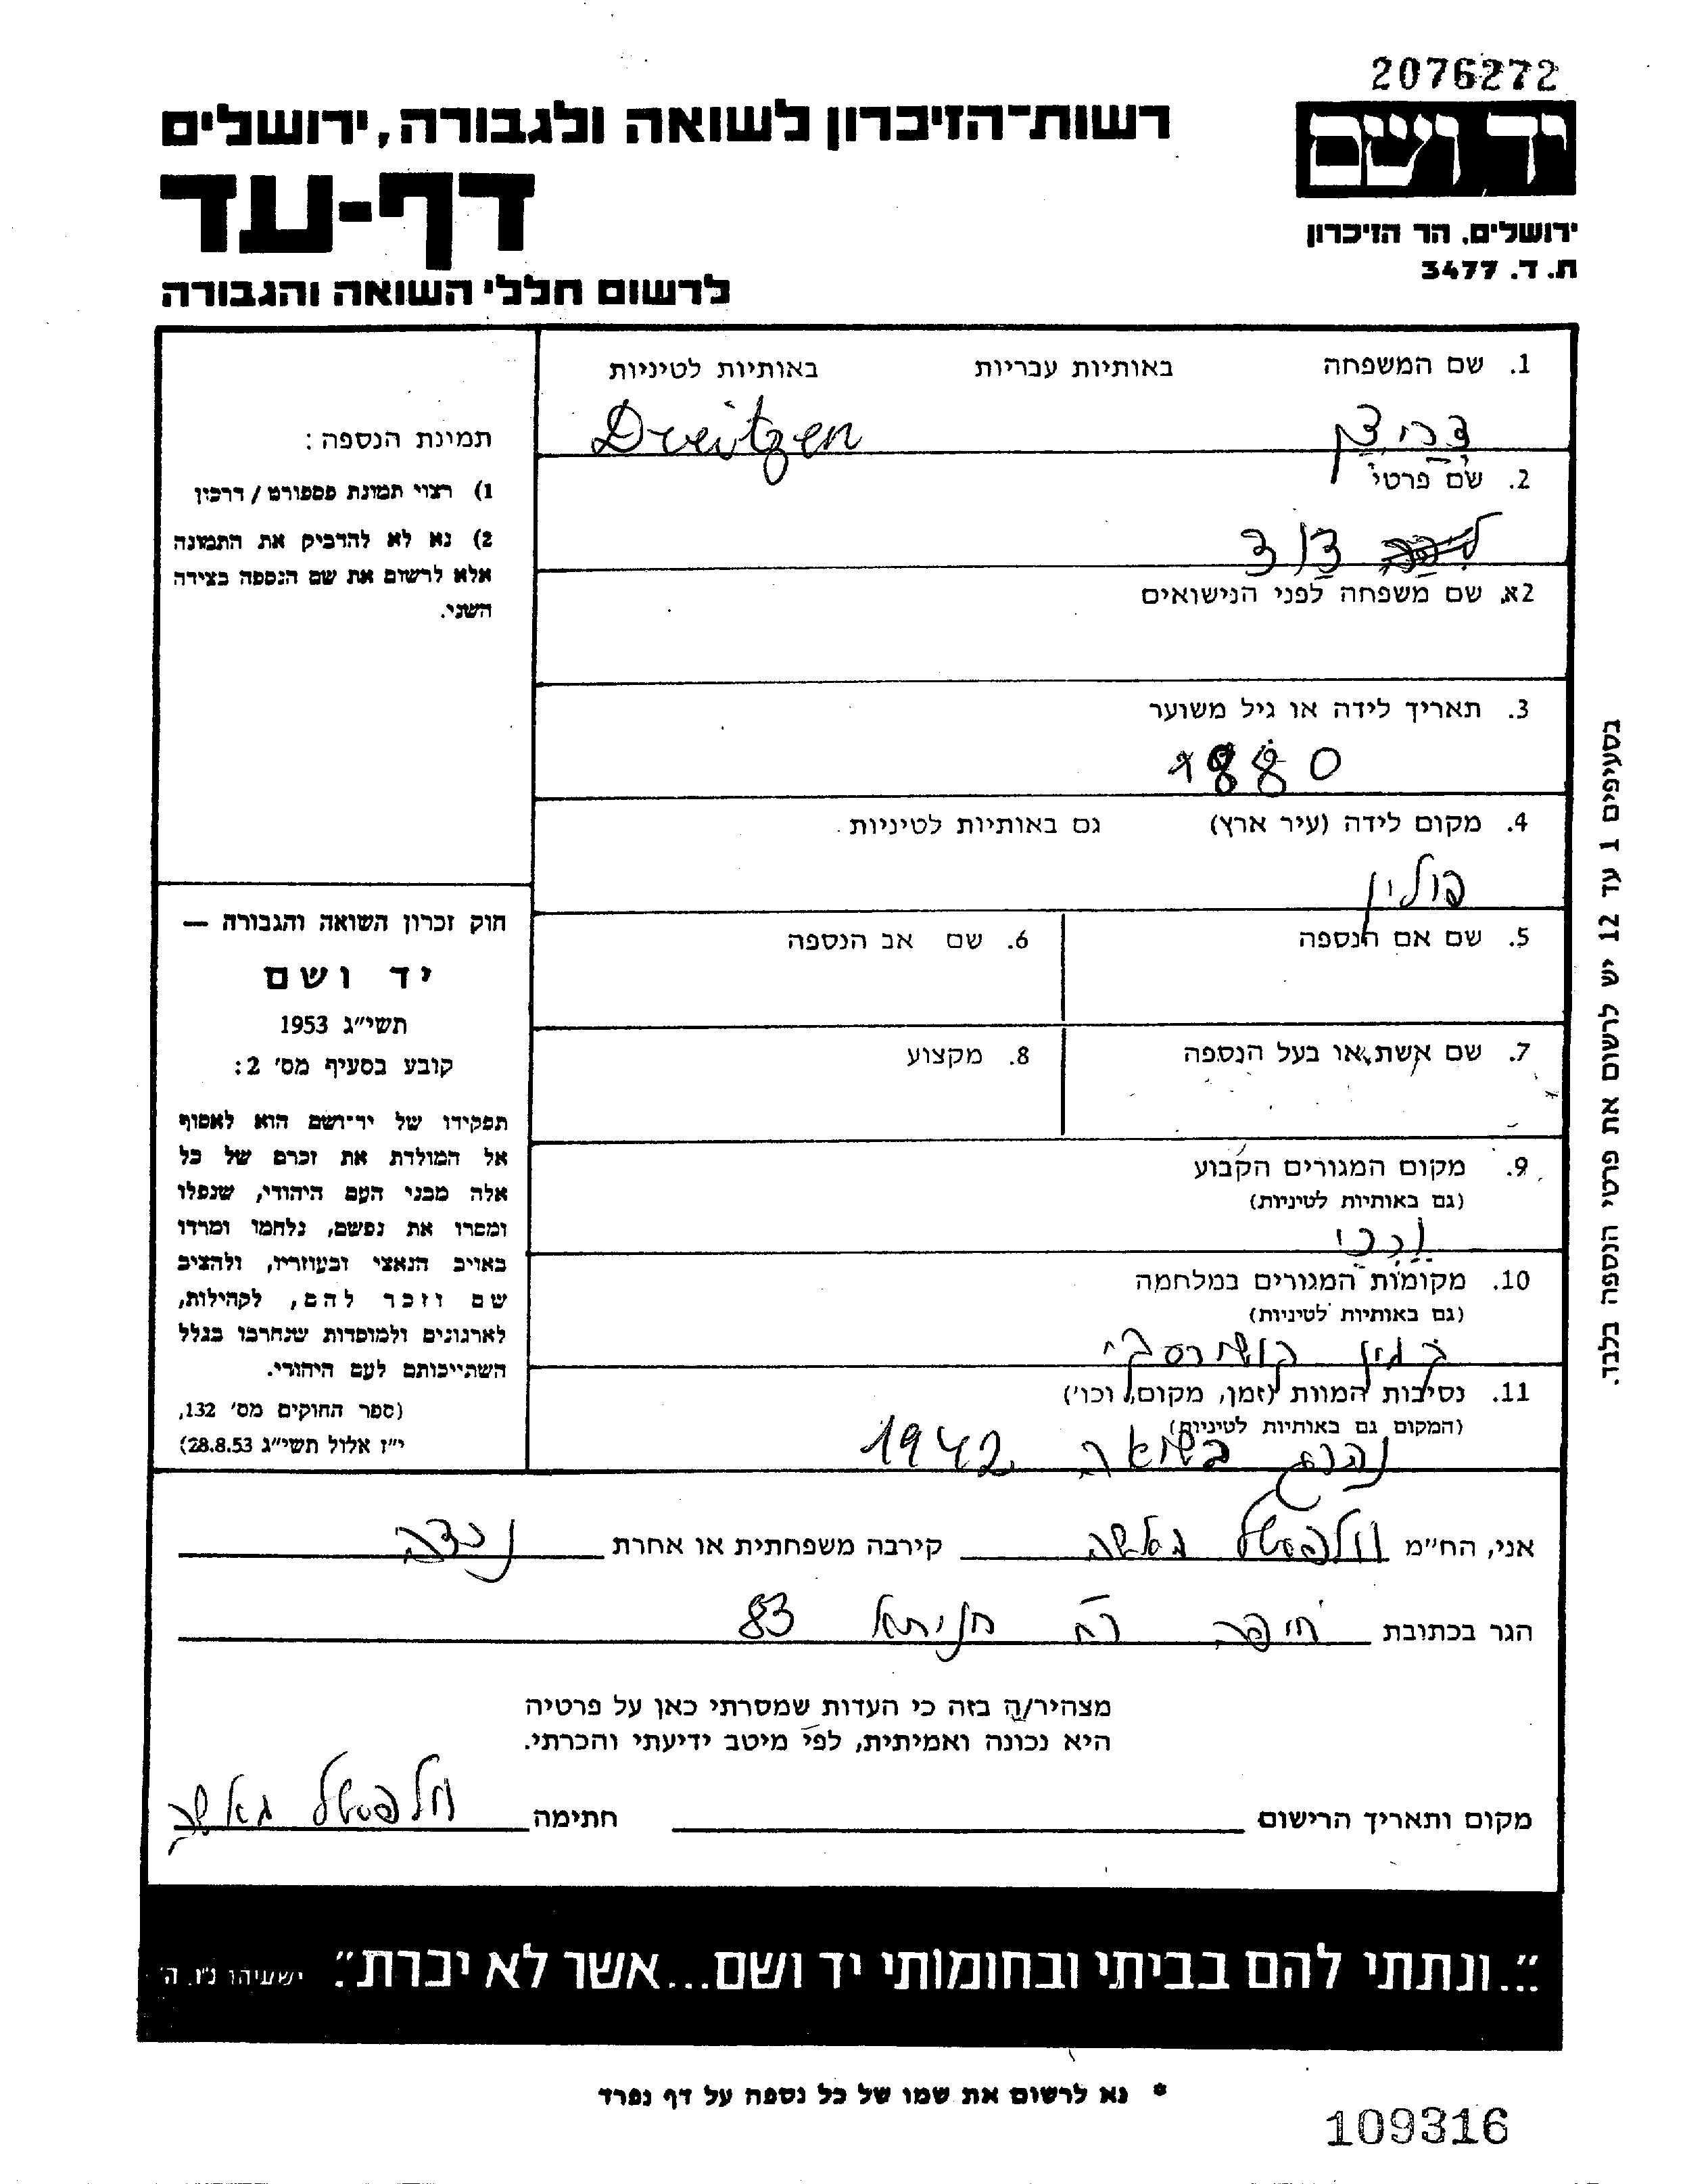 2076272
יד ושם
רשות־הזיכרון לשואה ולגבורה, ירושלים
דף-עד
ירושלים, הר הזיכרון
ת. ד. 3477
לרשום חללי השואה והגבורה
1. שם המשפחה באותיות עבריות באותיות לטיניות
דרייצן Dreitzen
2. שם פרטי
דוד
2א. שם משפחה לפני הנישואים
3. תאריך לידה או גיל משוער
1880
4. מקום לידה (עיר ארץ) גם באותיות לטיניות
פולין
5. שם אם הנספה 6. שם אב הנספה
7. שם אשת או בעל הנספה 8. מקצוע
9. מקום המגורים הקבוע
(גם באותיות לטיניות)
10. מקומות המגורים במלחמה
(גם באותיות לטיניות)
11. נסיבות המוות (זמן, מקום, וכו')
(המקום גם באותיות לטיניות)
נהרג בשואה 1942
תמונת הנספה:
1) רצוי תמונת פספורט / דרכון
2) נא לא להדביק את התמונה
אלא לרשום את שם הנספה בצידה
השני.
חוק זכרון השואה והגבורה —
יד ושם
תשי"ג 1953
קובע בסעיף מס' 2:
תפקידו של יד־ושם הוא לאסוף
אל המולדת את זכרם של כל
אלה מבני העם היהודי, שנפלו
ומסרו את נפשם, נלחמו ומרדו
באויב הנאצי ובעוזריו, ולהציב
שם וזכר להם, לקהילות,
לארגונים ולמוסדות שנחרבו בגלל
השתייכותם לעם היהודי.
(ספר החוקים מס' 132,
י"ז אלול תשי"ג 28.8.53)
בסעיפים 1 עד 12 יש לרשום את פרטי הנספה בלבד.
אני, הח"מ גאשה קירבה משפחתית או אחרת נכדה
הגר בכתובת חיפה רח חניתא 83
מצהיר/ה בזה כי העדות שמסרתי כאן על פרטיה
היא נכונה ואמיתית, לפי מיטב ידיעתי והכרתי.
מקום ותאריך הרישום חתימה גאשה
"...ונתתי להם בביתי ובחומותי יד ושם...אשר לא יכרת". ישעיהו נ"ו, ה'
* נא לרשום את שמו של כל נספה על דף נפרד
109316